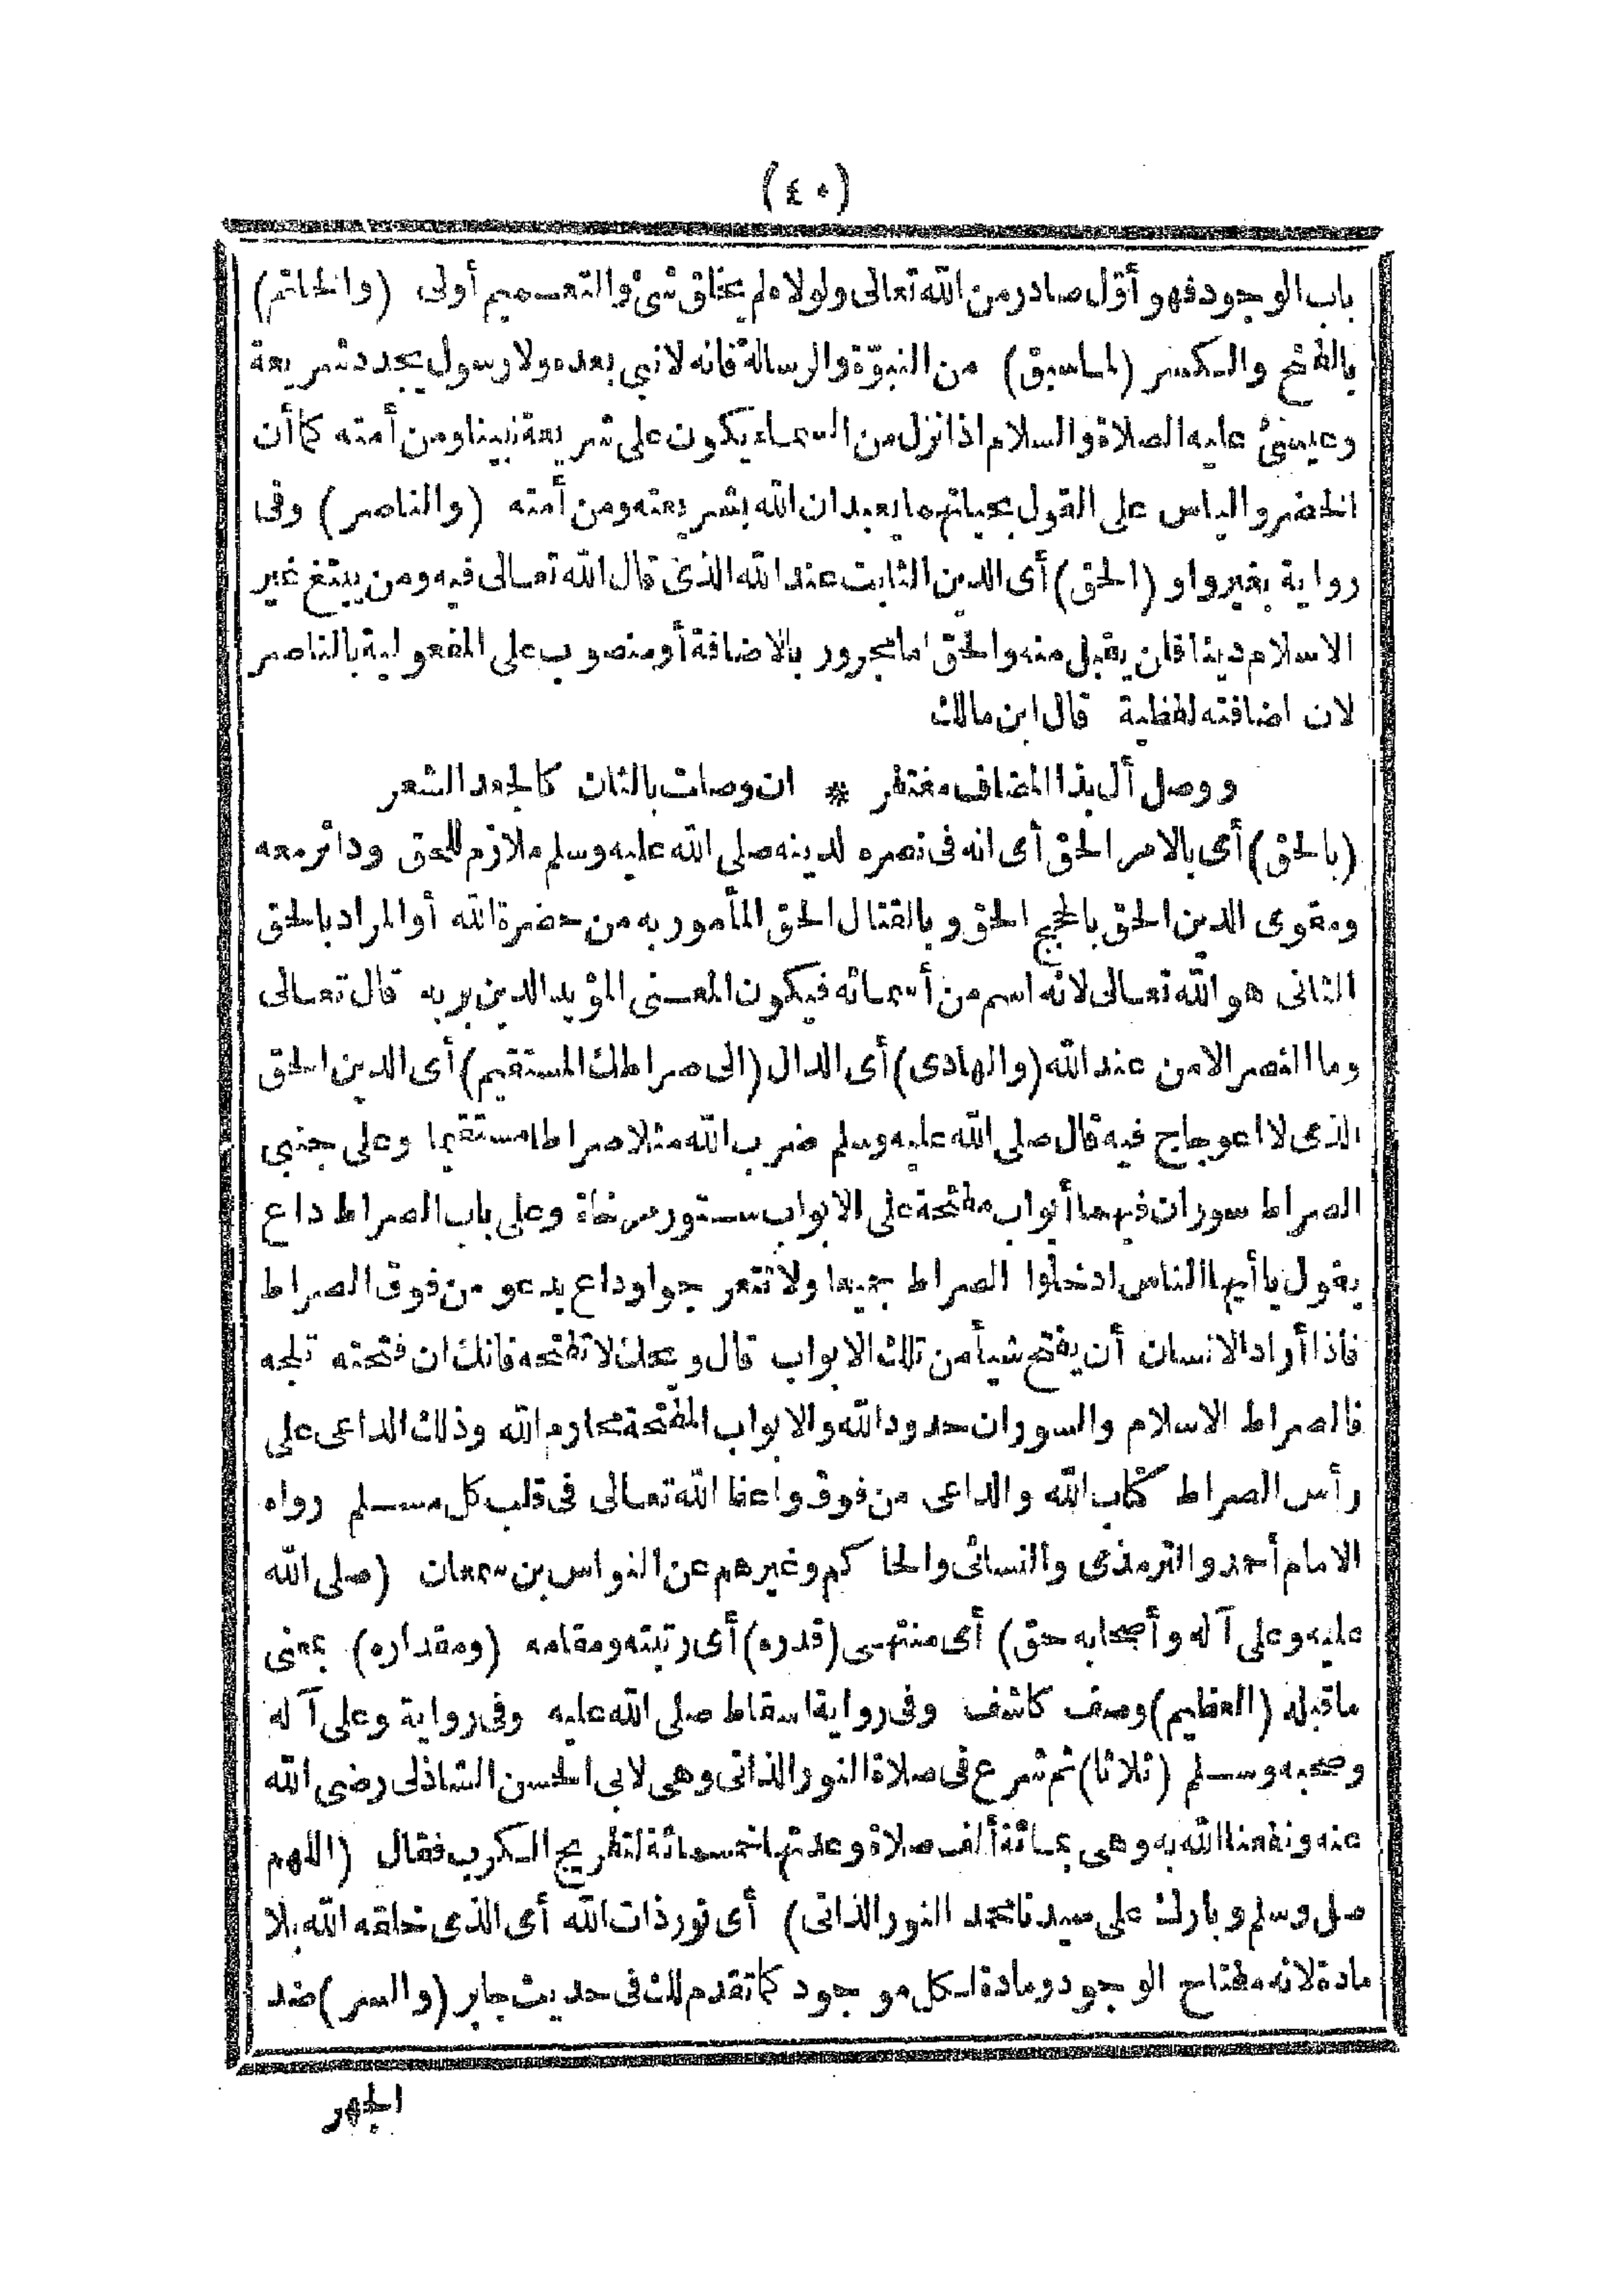 (٤٠)
باب الوجود فهو أوّل صادر من الله تعالى ولولاه لم يخلق شئ والتعميم أولى (والخاتم)
بالفتح والكسر (لما سبق) من النبوّة والرسالة فانه لا نبى بعده ولا رسول يجدد شريعة
وعيسى عليه الصلاة والسلام اذا نزل من السماء يكون على شريعة نبينا ومن أمته كما أن
الخضر والياس على القول بحياتهما يعبدان الله بشريعته ومن أمته (والناصر) وفى
رواية بغير واو (الحق) أى الدين الثابت عند الله الذى قال الله تعالى فيه ومن يبتغ غير
الاسلام دينا فلن يقبل منه والحق اما مجرور بالاضافة أو منصوب على المفعولية بالناصر
لان اضافته لفظية قال ابن مالك
ووصل أل بذا المضاف مغتفر * ان وصلت بالثان كالجعد الشعر
(بالحق) أى بالامر الحق أى انه فى نصره لدينه صلى الله عليه وسلم ملازم للحق ودائر معه
ومقوى الدين الحق بالحجج الحق وبالقتال الحق المأمور به من حضرة الله أو المراد بالحق
الثانى هو الله تعالى لانه اسم من أسمائه فيكون المعنى المؤيد الدين بربه قال تعالى
وما النصر الا من عند الله (والهادى) أى الدال (الى صراطك المستقيم) أى الدين الحق
الذى لا اعوجاج فيه قال صلى الله عليه وسلم ضرب الله مثلا صراطا مستقيما وعلى جنبى
الصراط سوران فيهما أبواب مفتحة على الابواب ستور مرخاة وعلى باب الصراط داع
يقول يا أيها الناس ادخلوا الصراط جميعا ولا تتعرجوا وداع يدعو من فوق الصراط
فاذا أراد الانسان أن يفتح شيأ من تلك الابواب قال ويحك لا تفتحه فانك ان فتحته تلجه
فالصراط الاسلام والسوران حدود الله والابواب المفتحة محارم الله وذلك الداعى على
رأس الصراط كتاب الله والداعى من فوق واعظ الله تعالى فى قلب كل مسلم رواه
الامام أحمد والترمذى والنسائى والحاكم وغيرهم عن النواس بن سمعان (صلى الله
عليه وعلى آله وأصحابه حق) أى منتهى (قدره) أى رتبته ومقامه (ومقداره) بمعنى
ما قبله (العظيم) وصف كاشف وفى رواية اسقاط صلى الله عليه وفى رواية وعلى آله
وصحبه وسلم (ثلاثا) ثم شرع فى صلاة النور الذاتى وهى لابى الحسن الشاذلى رضى الله
عنه ونفعنا الله به وهى بمائة ألف صلاة وعدتها خمسمائة لتفريج الكرب فقال (اللهم
صل وسلم وبارك على سيدنا محمد النور الذاتى) أى نور ذات الله أى الذى خلقه الله بلا
مادة لانه مفتاح الوجود ومادة لكل موجود كما تقدم لك فى حديث جابر (والسر) ضد
الجهر